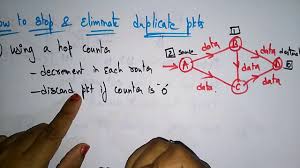 How to stop & eliminate duplicate pkts
) using a hop counter
- decrement in each router
- discard pkt if counter is 'o'
1
B
data
data
2 source
A
data
data
destina
D
data
C